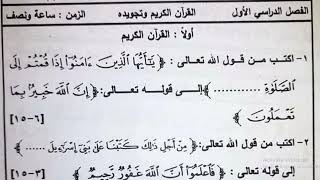 الفصل الدراسي الأول القرآن الكريم وتجويده الزمن : ساعة ونصف
أولاً : القرآن الكريم
١- اكتب من قول الله تعالى : ﴿ يَٰٓأَيُّهَا ٱلَّذِينَ ءَامَنُوٓا۟ إِذَا قُمْتُمْ إِلَى
ٱلصَّلَوٰةِ ﴾ إلى قوله تعالى : ﴿ إِنَّ ٱللَّهَ خَبِيرٌۢ بِمَا
تَعْمَلُونَ ﴾ [٦-١٥]
٢- اكتب من قول الله تعالى : ﴿ مِنْ أَجْلِ ذَٰلِكَ كَتَبْنَا عَلَىٰ بَنِىٓ إِسْرَٰٓءِيلَ
إلى قوله تعالى : ﴿ فَٱعْلَمُوٓا۟ أَنَّ ٱللَّهَ غَفُورٌ رَّحِيمٌ ﴾ [٣-١٥]